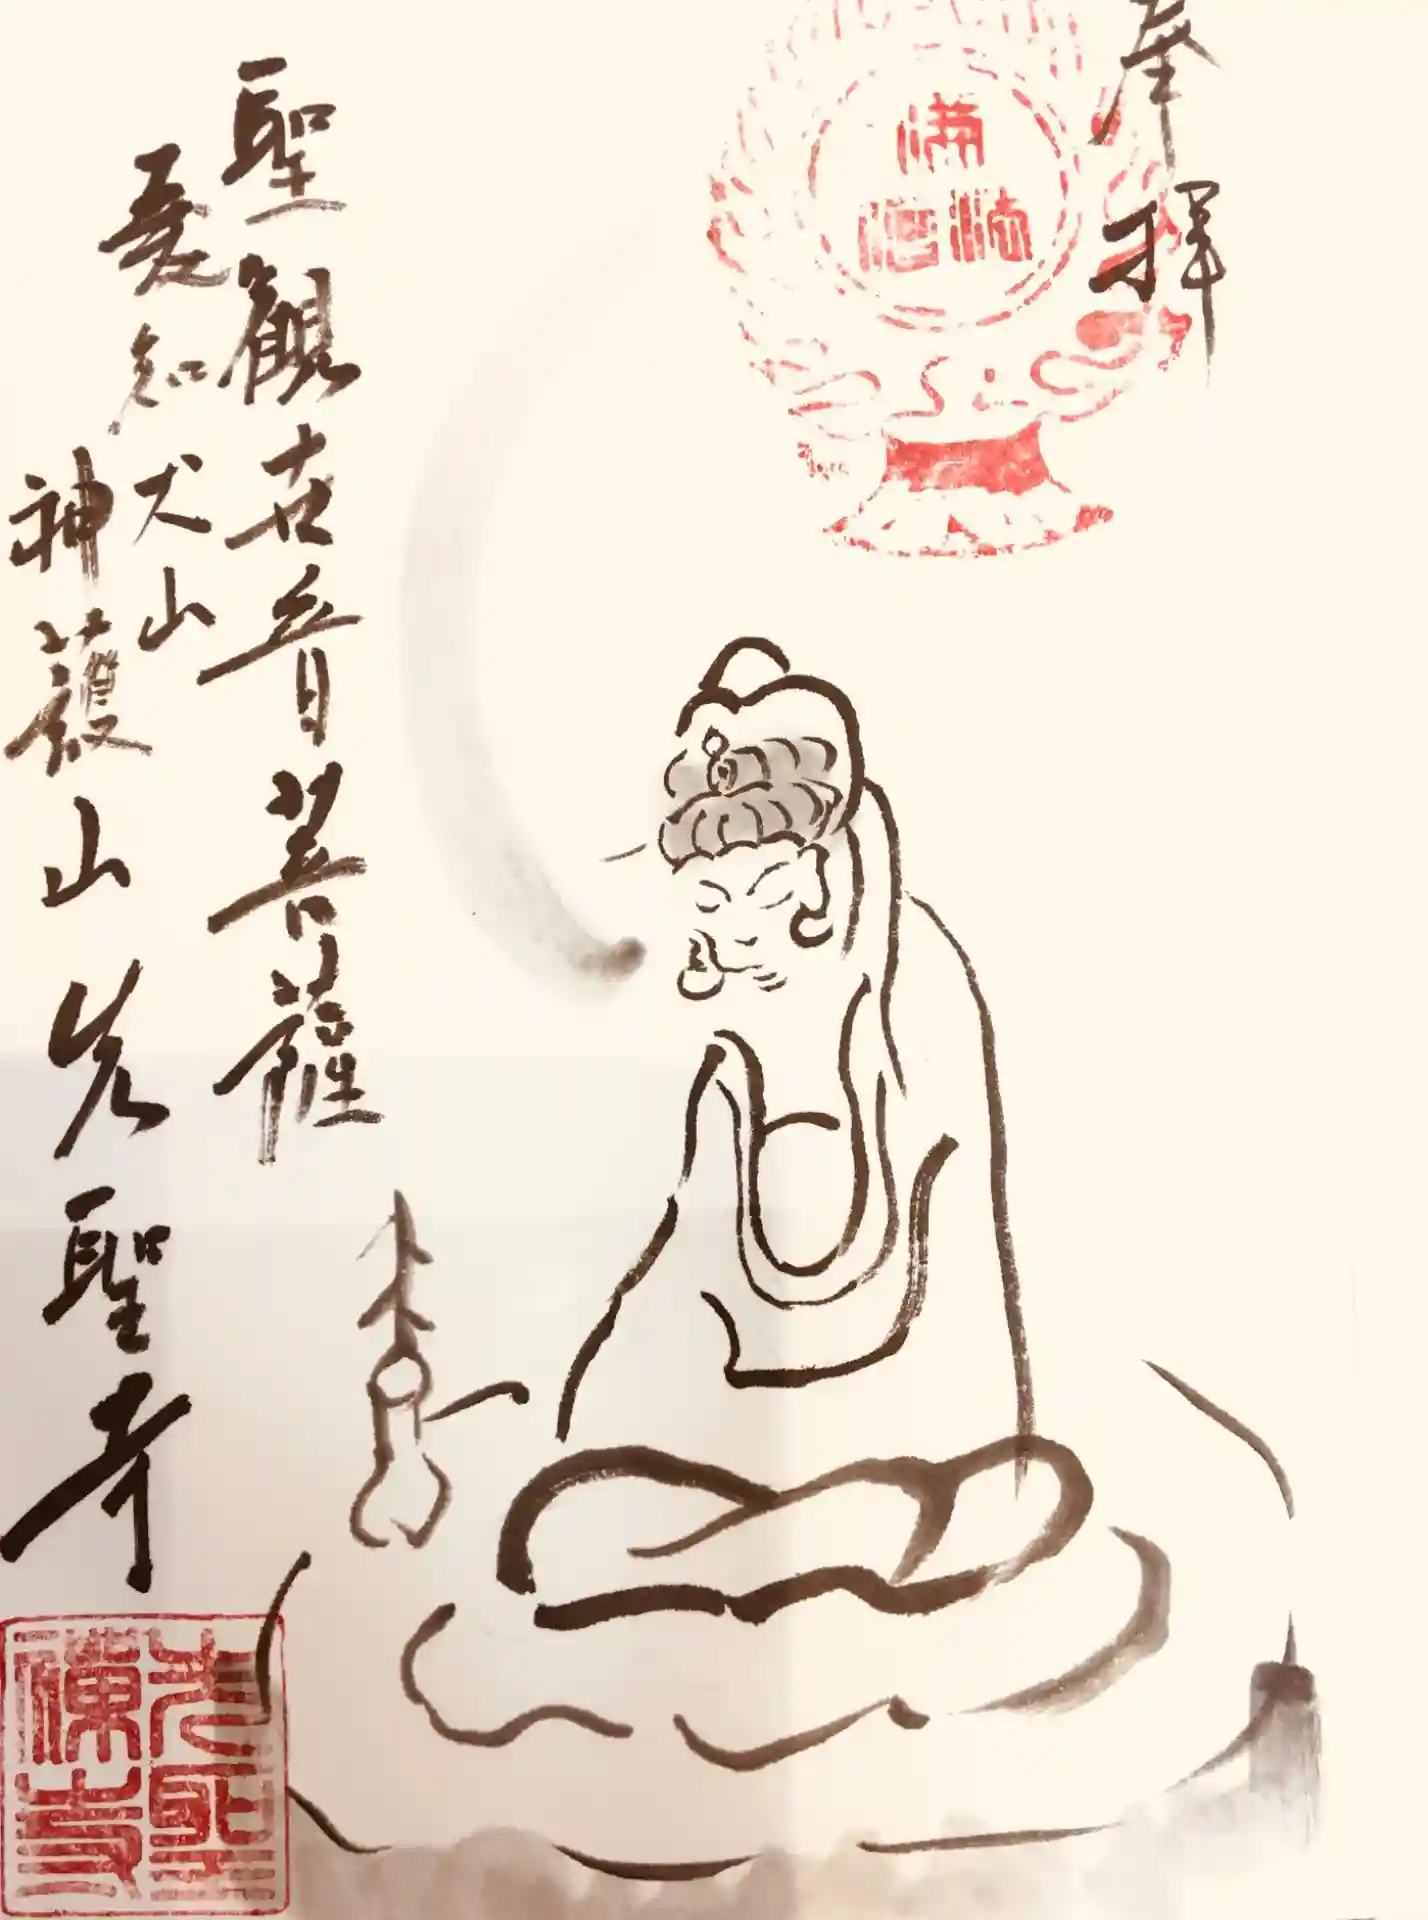 奉拝
聖觀世音菩薩
愛知犬山
神護山先聖寺
先聖
禪寺